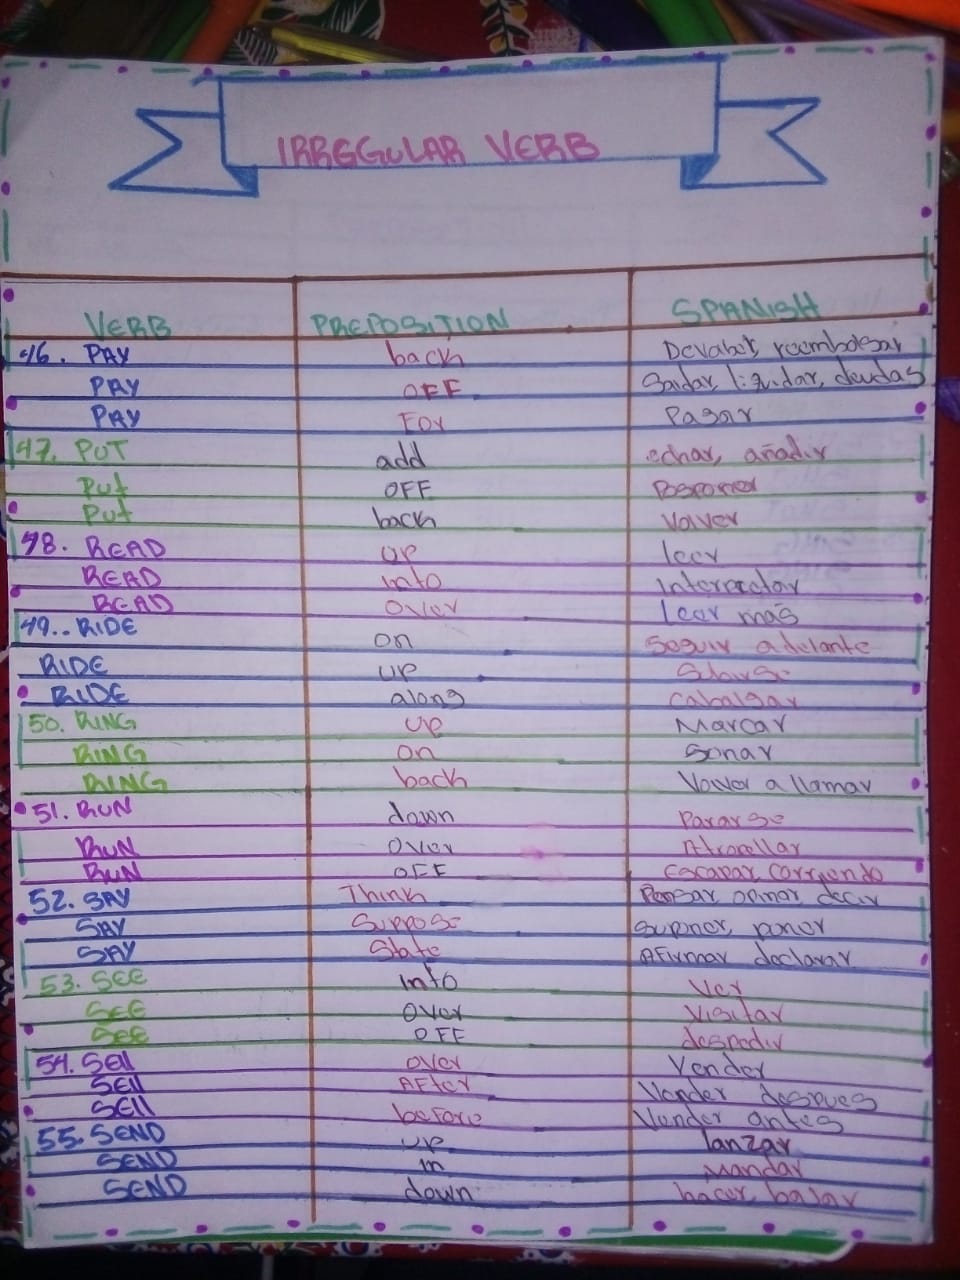 IRREGULAR VERB
VERB PREPOSITION SPANISH
46. PAY back Devolver, reembolsar
PAY OFF Saldar, liquidar, deudas
PAY For Pagar
47. PUT add echar, añadir
Put OFF Posponer
Put back Volver
48. READ up leer
READ into Interpretar
READ Over Leer más
49.. RIDE on Seguir adelante
RIDE up Subirse
RIDE along Cabalgar
50. RING up Marcar
RING on Sonar
RING back Volver a llamar
51. RUN down Pararse
RUN Over Atropellar
RUN OFF Escapar, Corriendo
52. SAY Think Pensar, opinar, decir
SAY Suppose Suponer, poner
SAY State AFirmar declarar
53. SEE Into Ver
SEE Over Visitar
SEE OFF despedir
54. Sell over Vender
Sell AFter Vender despues
Sell before Vender antes
55. SEND up lanzar
SEND in Mandar
SEND down hacer, bajar